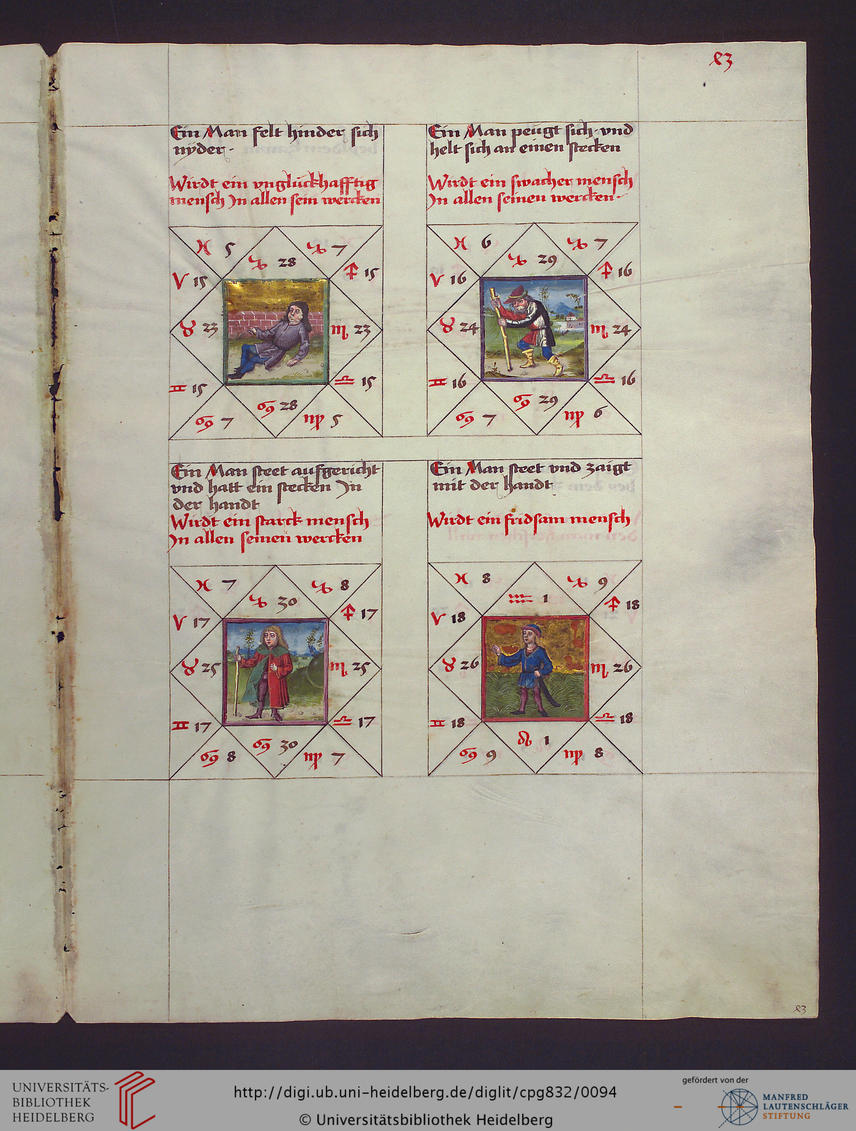 83
Ein Man felt hinder sich
nyder ·
Wirdt ein vnglückhafftig
mensch Jn allen sein wercken
♓ 5
♑ 28
♑ 7
♈ 15
♐ 15
♉ 23
♏ 23
♊ 15
♎ 15
♋ 7
♋ 28
♍ 5
Ein Man peügt sich · vnd
helt sich an einen stecken
Wirdt ein swacher mensch
Jn allen seinen wercken ·
♓ 6
♑ 29
♑ 7
♈ 16
♐ 16
♉ 24
♏ 24
♊ 16
♎ 16
♋ 7
♋ 29
♍ 6
Ein Man steet aufgericht
vnd hatt ein stecken Jn
der handt
Wirdt ein starck mensch
Jn allen seinen wercken
♓ 7
♑ 30
♑ 8
♈ 17
♐ 17
♉ 25
♏ 25
♊ 17
♎ 17
♋ 8
♋ 30
♍ 7
Ein Man steet vnd zaigt
mit der handt
Wirdt ein fridsam mensch
♓ 8
♒ 1
♑ 9
♈ 18
♐ 18
♉ 26
♏ 26
♊ 18
♎ 18
♋ 9
♌ 1
♍ 8
83
UNIVERSITÄTS-
BIBLIOTHEK
HEIDELBERG
http://digi.ub.uni-heidelberg.de/diglit/cpg832/0094
© Universitätsbibliothek Heidelberg
gefördert von der
MANFRED
LAUTENSCHLÄGER
STIFTUNG